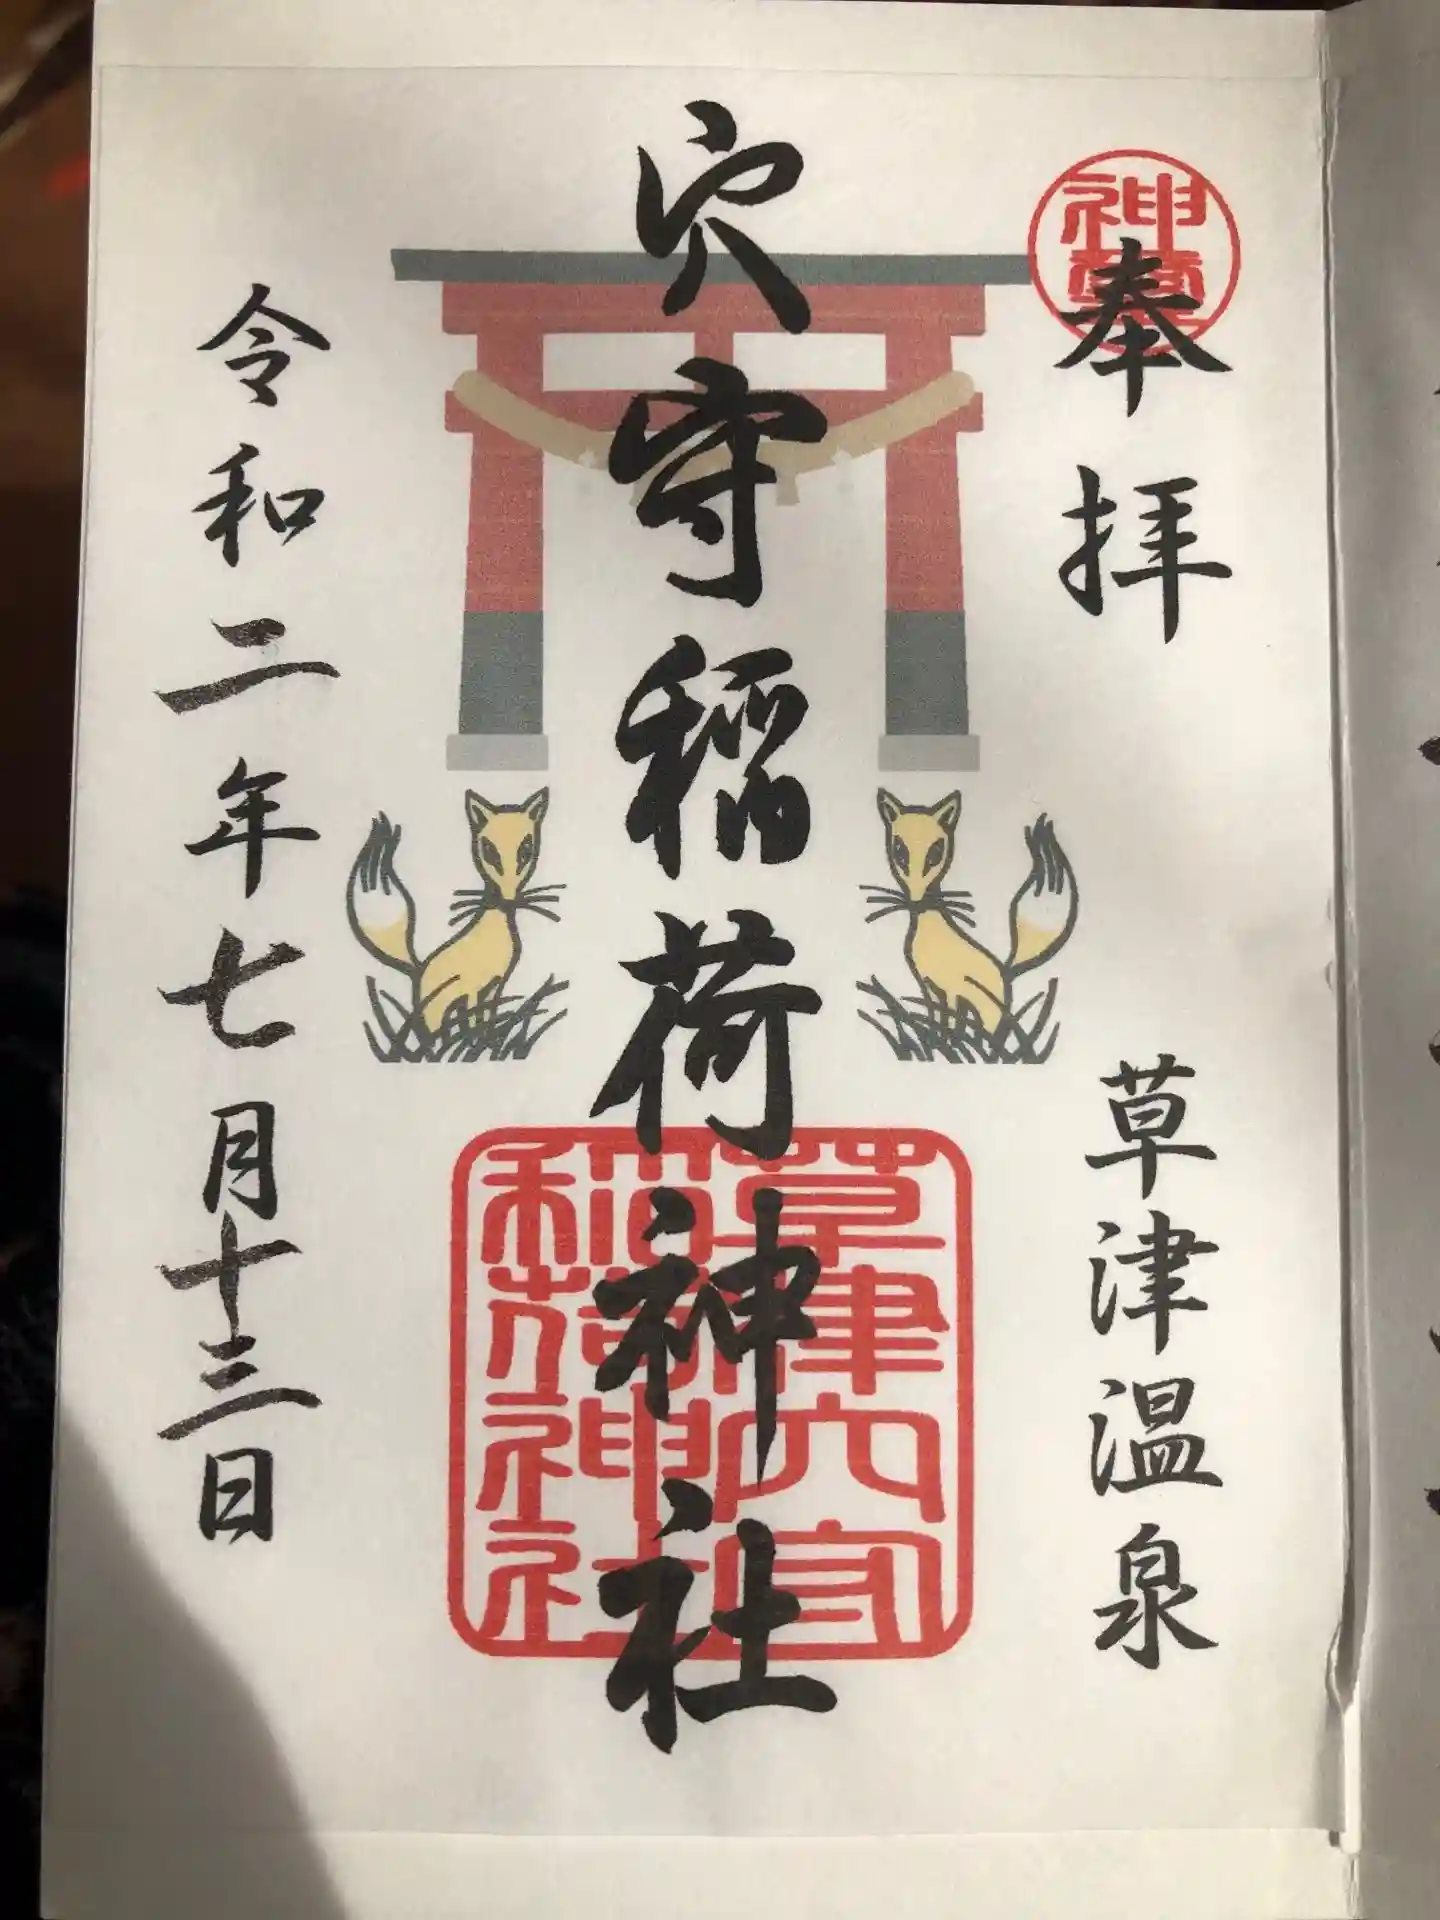 奉拝
草津温泉
穴守稲荷神社
令和二年七月十三日
神璽
草津穴守
稲荷神社